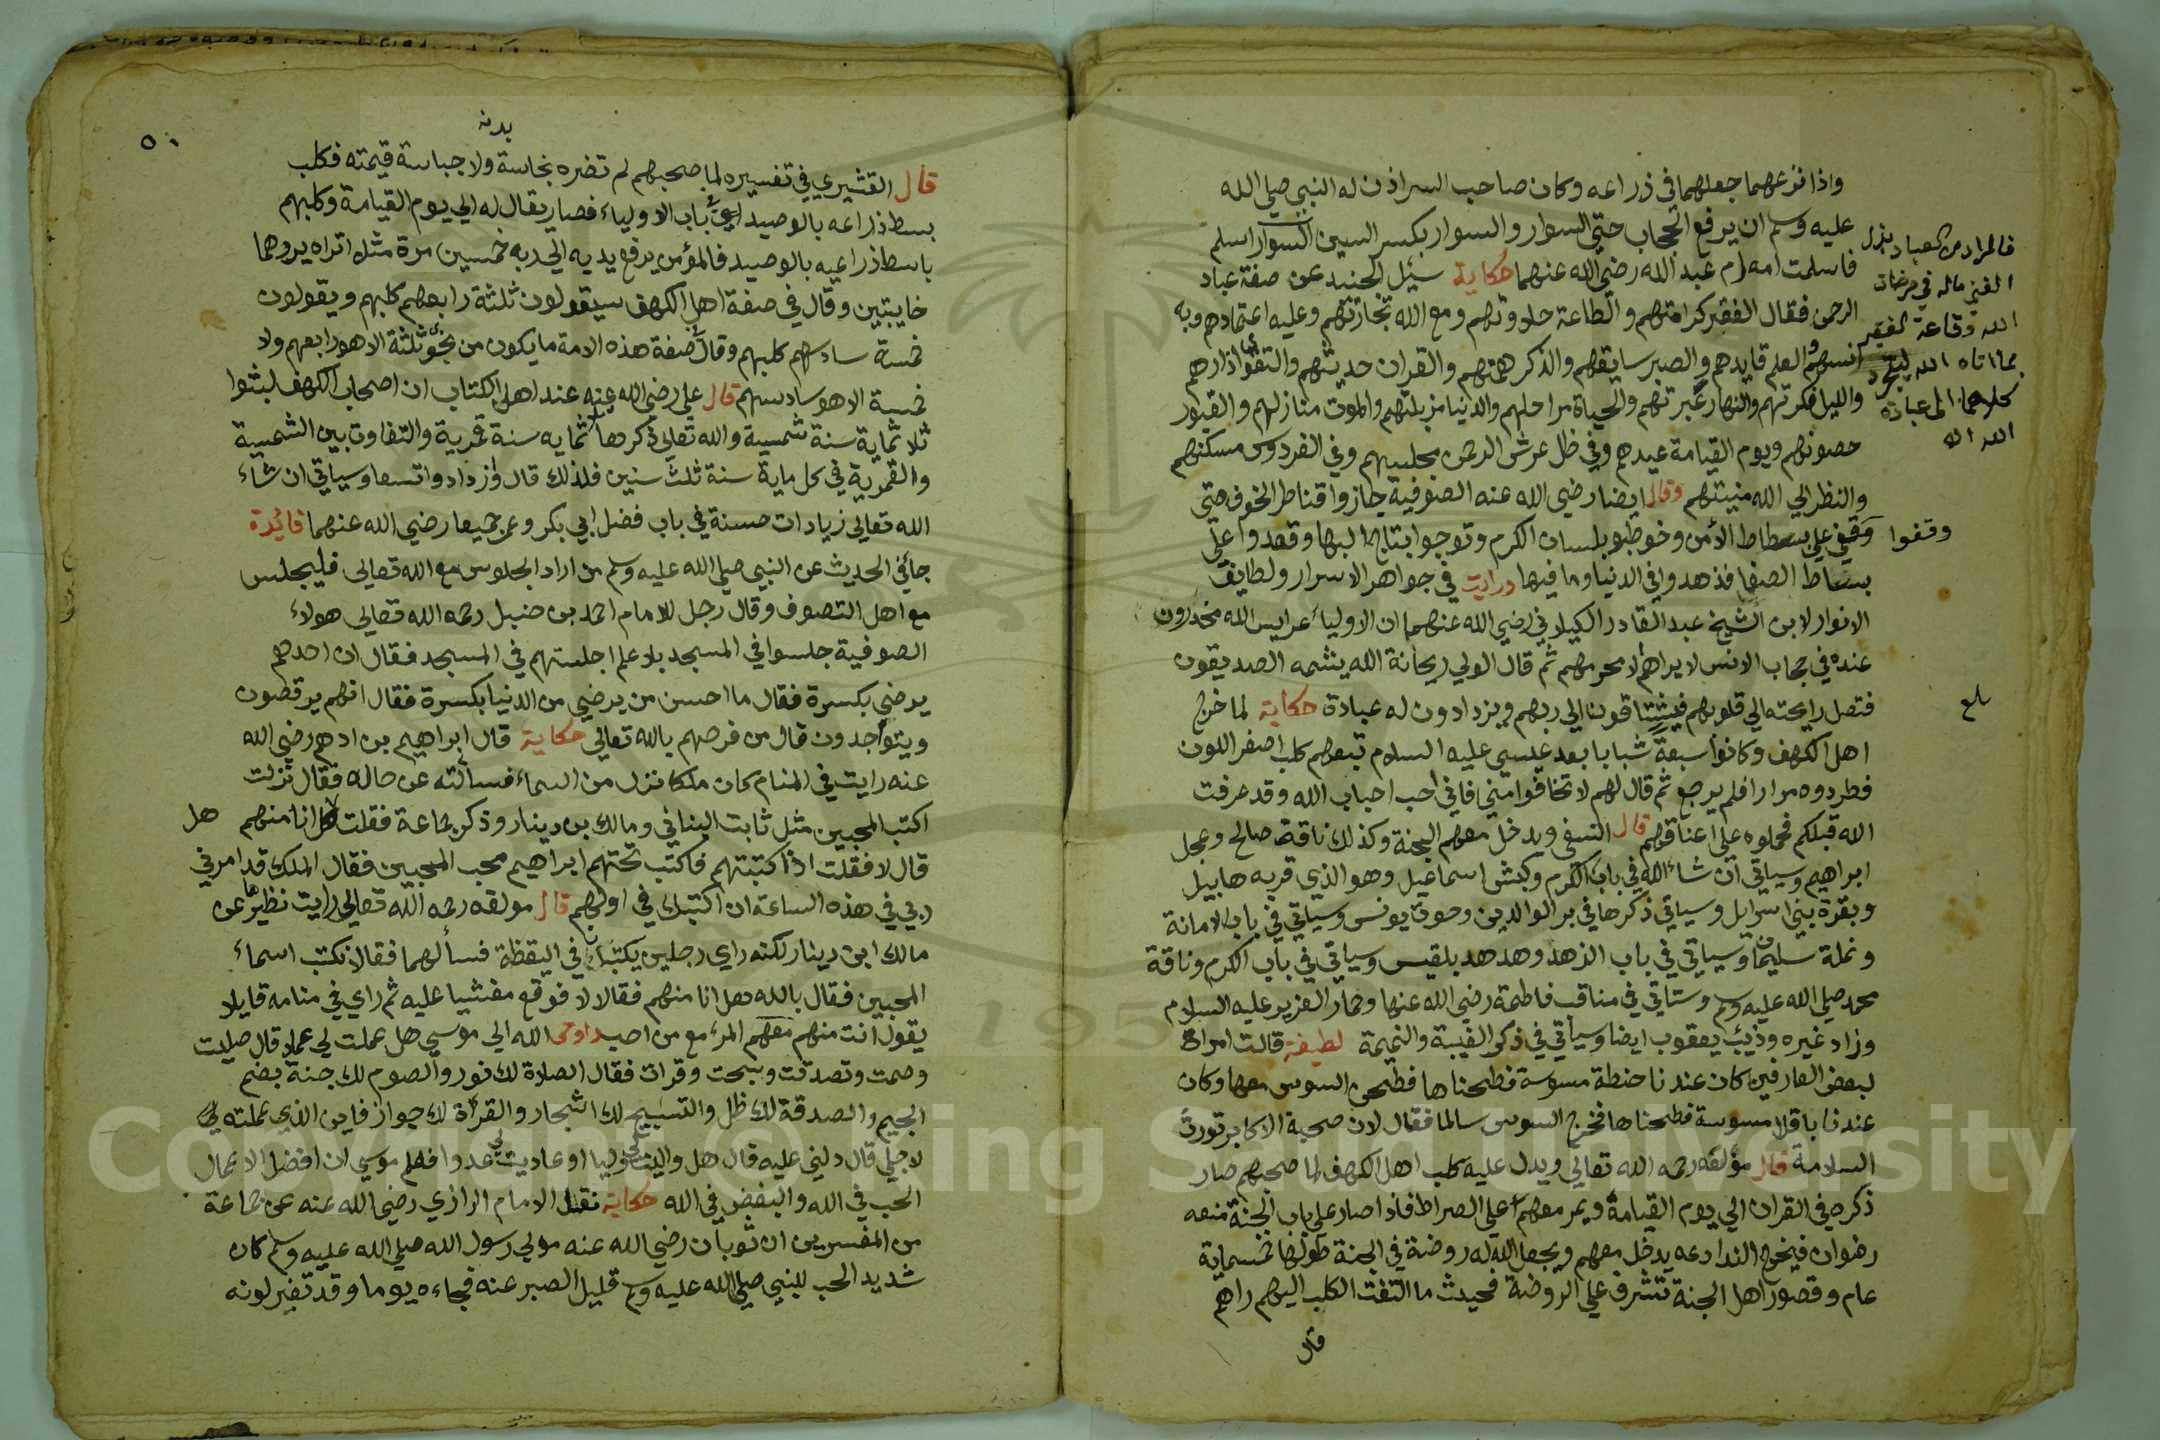 واذا نزعهما جعلهما في ذراعه وكان صاحب السر اذن له النبي صلي الله
عليه وسلم ان يرفع الحجاب حتي السوار والسوار بكسر السين السوار اسلم
فاسلمت امه ام عبد الله رضي الله عنهما حكاية سئل الجنيد عن صفة عباد
الرحمن فقال الفقر كرامتهم والطاعة حلاوتهم ومع الله تجارتهم وعليه اعتمادهم وبه
انسهم والعلم قايدهم والصبر سايقهم والذكر همتهم والقران حديثهم والتقوي ازارهم
والليل فكرتهم والنهار عبرتهم والحياة مراحلهم والدنيا مزبلتهم والموت منازلهم والقبور
حصونهم ويوم القيامة عيدهم وفي ظل عرش الرحمن مجلسهم وفي الفردوس مسكنهم
والنظر الي الله منيتهم وقال ايضا رضي الله عنه الصوفية جازوا قناطر الخوف حتي
وقفوا علي بساط الأمن وخوطبوا بلسان الكرم وتوجوا بتاج البها وقعدوا علي
بساط الصفا فزهدوا في الدنيا وما فيها ورايت في جواهر الاسرار ولطايف
الانوار لابن الشيخ عبد القادر الكيلاني رضي الله عنهما ان الاوليأ عرايس الله مخدرون
عنده في حجاب الانس لا يراهم الا محرمهم ثم قال الولي ريحانة الله يشمه الصديقون
فتصل رايحته الي قلوبهم فيشتاقون الي ربهم ويزدادون له عبادة حكاية لما خرج
اهل الكهف وكانوا سبعة شبابا بعد عيسي عليه السلام تبعهم كلب اصفر اللون
فطردوه مرارا فلم يرجع ثم قال لهم لا تخافوا مني فاني احب احباب الله وقد عرفت
الله قبلكم فحملوه علي اعناقهم قال النسفي ويدخل معهم الجنة وكذلك ناقة صالح وعجل
ابراهيم وسياتي ان شاء الله في باب الكرم وكبش اسماعيل وهو الذي قربه هابيل
وبقرة بني اسرايل وسياتي ذكرها في بر الوالدين وحوت يونس وسياتي في باب الامانة
ونملة سليمان وسياتي في باب الزهد وهدهد بلقيس وسياتي في باب الكرم وناقة
محمد صلي الله عليه وسلم وستاتي في مناقب فاطمة رضي الله عنها وحمار العزير عليه السلام
وزاد غيره وذئب يعقوب ايضا وسيأتي في ذكر الغيبة والنميمة لطيفة قالت امراة
لبعض العارفين كان عندنا حنطة مسوسة فطحناها فطحن السوس معها وكان
عندنا باقلا مسوسة فطحناها فخرج السوس سالما فقال لان صحبة الاكابر تورث
السلامة قال مؤلفه رحمه الله تعالي ويدل عليه كلب اهل الكهف لما صحبهم صار
ذكره في القران الي يوم القيامة ويمر معهم علي الصراط فاذا صار علي باب الجنة منعه
رضوان فيخرج الندا دعه يدخل معهم ويجعل الله له روضة في الجنة طولها خمسماية
عام وقصور اهل الجنة تشرف علي الروضة فحيث ما التفت الكلب اليهم راهم
قال
فالمراد من العباد بذل
الغني ماله في مرضات
الله وقناعة الفقير
بما اتاه الله
كلهما الي عبادة
الله
وقفوا
بلغ
٥٠
بدنه
قال القشيري في تفسيره لما صحبهم لم تضره نجاسة ولا خساسة قيمته فكلب
بسط ذراعه بالوصيد اي باب الاولياء فصار يقال له الي يوم القيامة وكلبهم
باسط ذراعيه بالوصيد فالمؤمن يرفع يديه الي ربه خمسين مرة مثل اتراه يردهما
خايبتين وقال في صفة اهل الكهف سيقولون ثلثة رابعهم كلبهم ويقولون
خمسة سادسهم كلبهم وقال في صفة هذه الامة ما يكون من نجوي ثلثة الا هو رابعهم ولا
خمسة الا هو سادسهم قال علي رضي الله عنه عند اهل الكتاب ان اصحاب الكهف لبثوا
ثلاثماية سنة شمسية والله تعالي ذكر ثلثمايه سنة قمرية والتفاوت بين الشمسية
والقمرية في كل ماية سنة ثلث سنين فلذلك قال وازدادوا تسعا وسياتي ان شاء
الله تعالي زيادات حسنة في باب فضل ابي بكر وعمر جميعا رضي الله عنهما فائدة
جائ في الحديث عن النبي صلي الله عليه وسلم من اراد الجلوس مع الله تعالي فليجلس
مع اهل التصوف وقال رجل للامام احمد بن حنبل رحمه الله تعالي هولاء
الصوفية جلسوا في المسجد بلا علم اجلستهم في المسجد فقال ان احدهم
يرضي بكسرة فقال ما احسن من يرضي من الدنيا بكسرة فقال انهم يرقصون
ويتواجدون قال من فرحهم بالله تعالي حكاية قال ابراهيم بن ادهم رضي الله
عنه رايت في المنام كان ملكا نزل من السماء فسالته عن حاله فقال نزلت
اكتب المحبين مثل ثابت البناني ومالك بن دينار وذكر جماعة فقلت هل انا منهم هل
قال لا فقلت اذا كتبتهم فاكتب تحتهم ابراهيم محب المحبين فقال الملك قد امرني
ربي في هذه الساعة ان اكتبك في اولهم قال مولفه رحمه الله تعالي رايت نظيرها عن
مالك ابن دينار لكنه راي رجلين يكتبان في اليقظة فسألهما فقالا نكتب اسماء
المحبين فقال بالله هل انا منهم فقالا لا فوقع مغشيا عليه ثم راي في منامه قايلا
يقول انت منهم معهم المرء مع من احب اوحي الله الي موسي هل عملت لي عملا قال صليت
وصمت وتصدقت وسبحت وقرات فقال الصلاة لك نور والصوم لك جنة بضم
الجيم والصدقة لك ظل والتسبيح لك اشجار والقرأة لك جواز فاين الذي عملته لي
لاجلي قال دلني عليه قال هل واليت لي وليا او عاديت لي عدوا فعلم موسي ان افضل الاعمال
الحب في الله والبغض في الله حكاية نقل الامام الرازي رضي الله عنه عن جماعة
من المفسرين ان ثوبان رضي الله عنه مولي رسول الله صلي الله عليه وسلم كان
شديد الحب للنبي صلي الله عليه وسلم قليل الصبر عنه فجاءه يوما وقد تغير لونه
Copyright © King Saud University
195